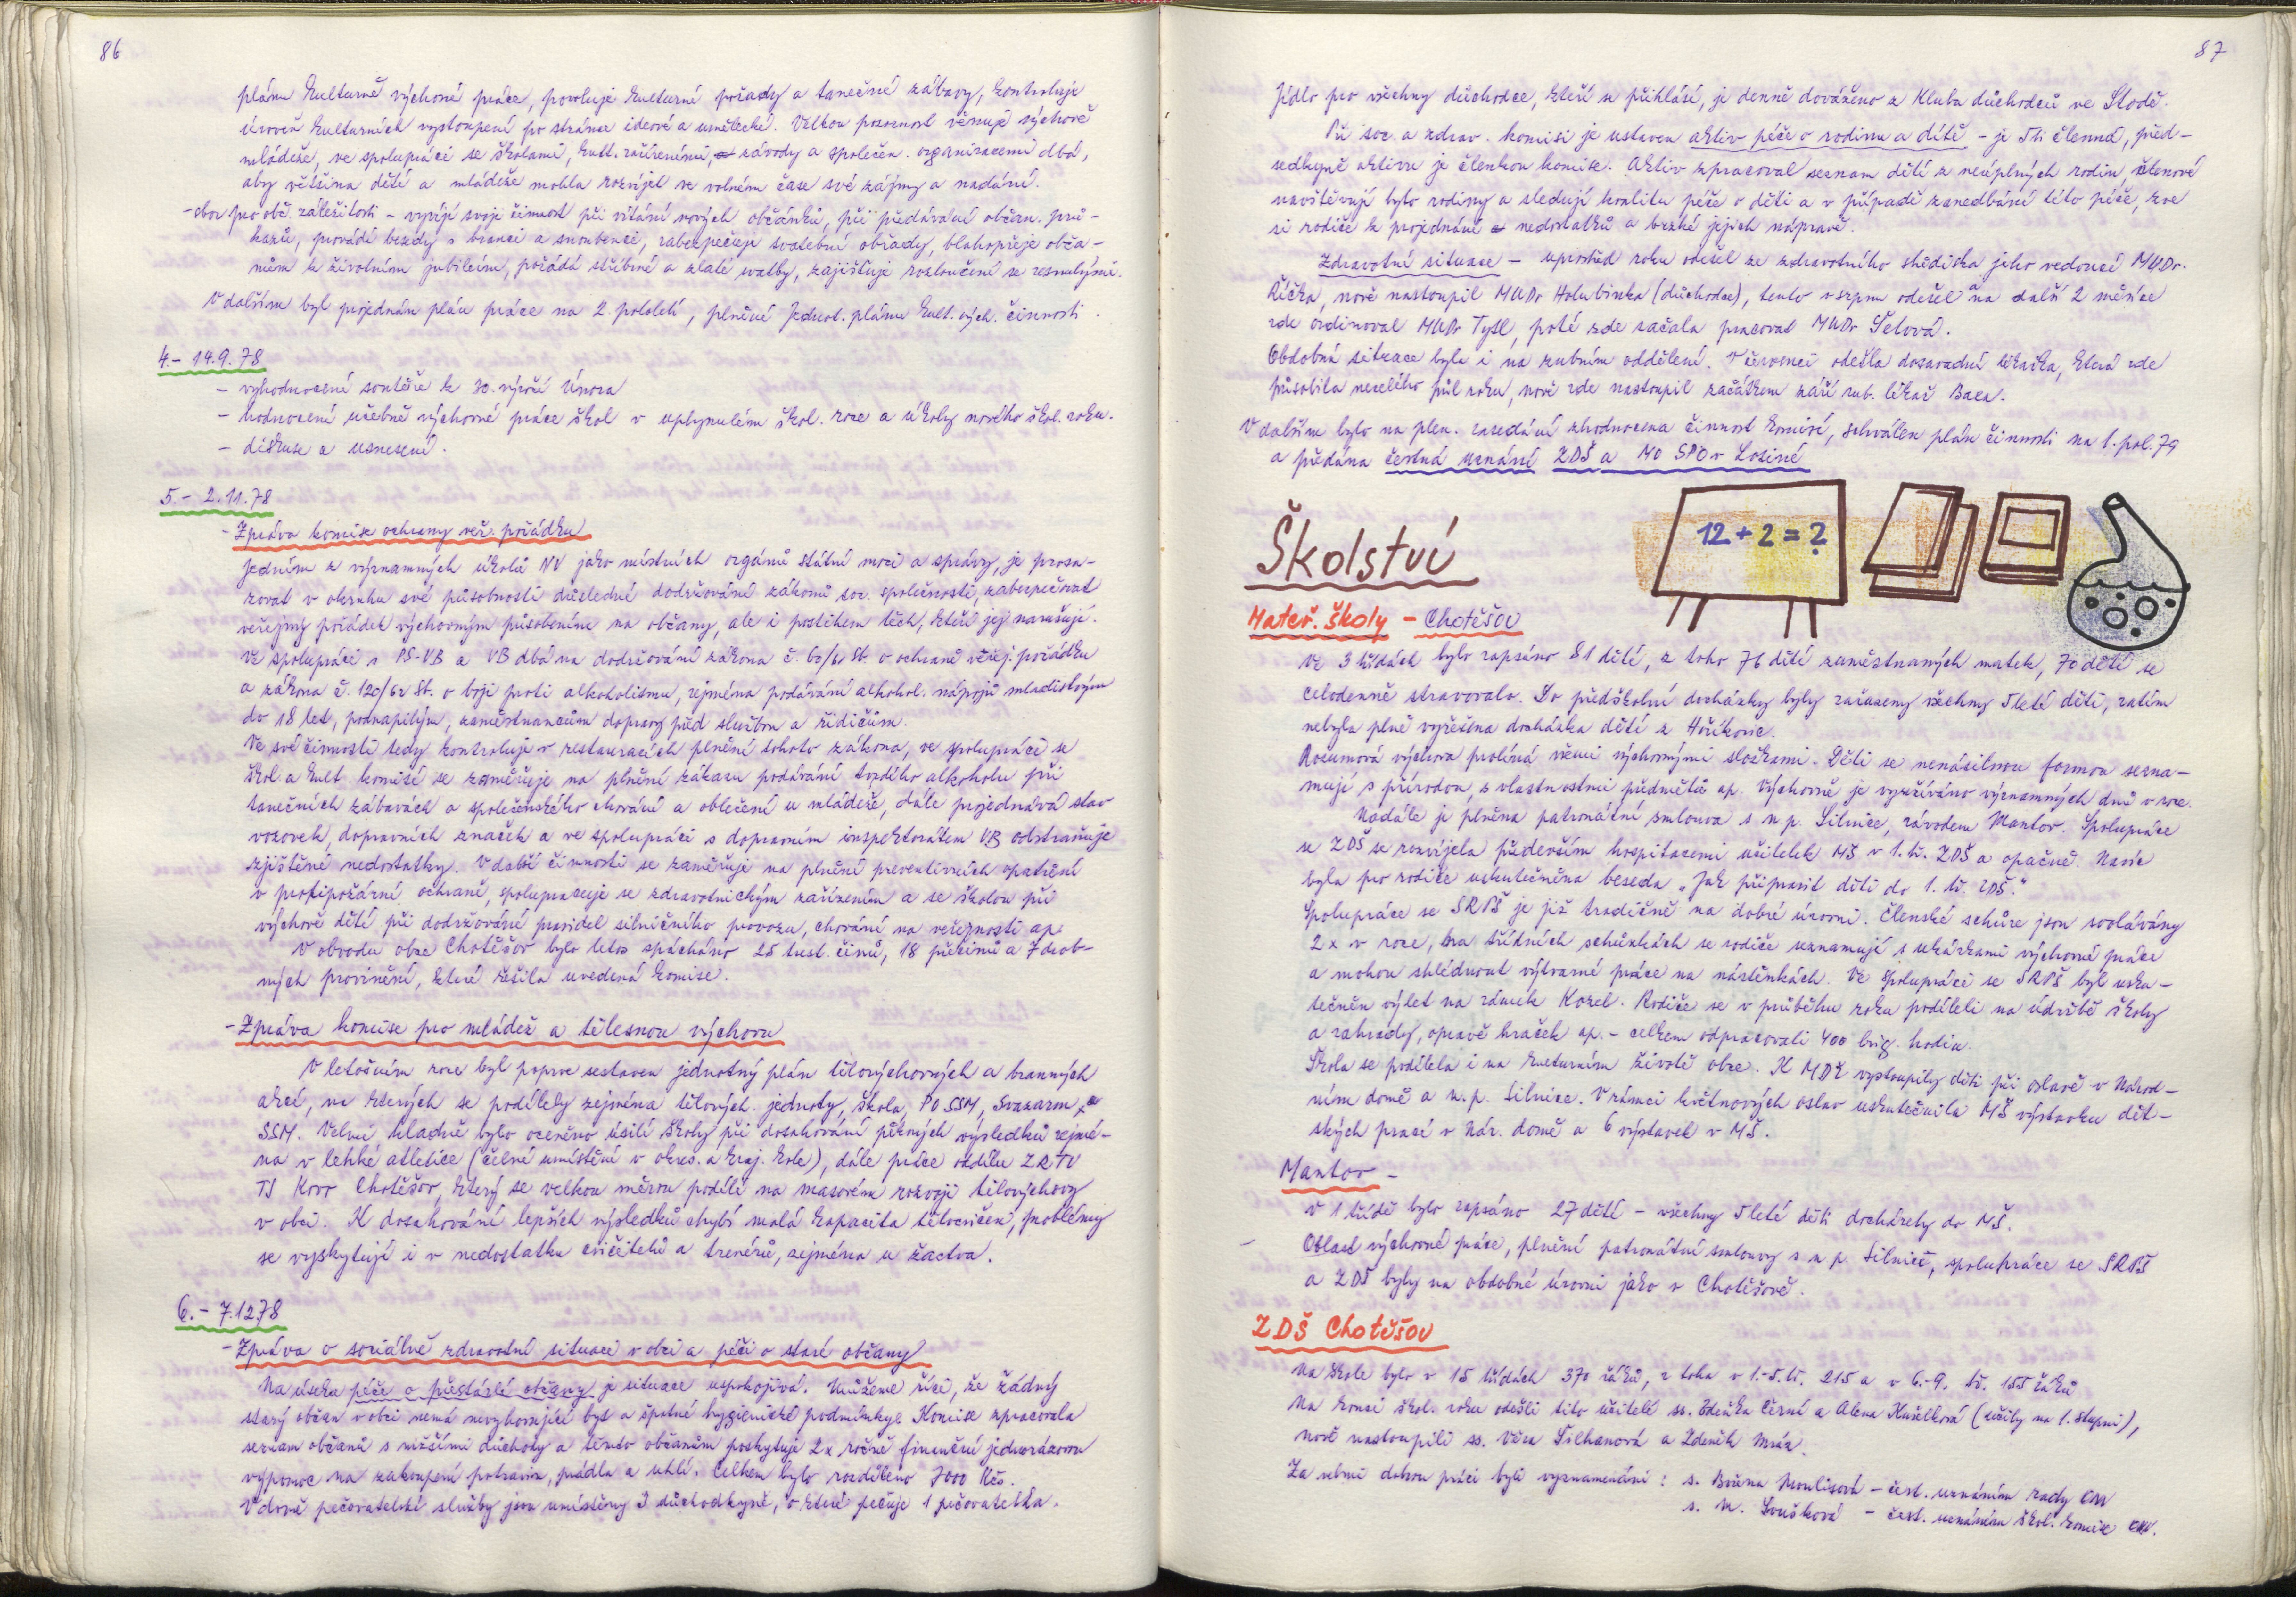 86
plánu kulturně výchovné práce, povoluje kulturní pořady a taneční zábavy, kontroluje
úroveň kulturních vystoupení po stránce ideové a umělecké. Velkou pozornost věnuje výchově
mládeže, ve spolupráci se školami, kult. zařízeními, závody a společen. organizacemi dbá,
aby většina dětí a mládeže mohla rozvíjet ve volném čase své zájmy a nadání.
- sbor pro obč. záležitosti - vyvíjí svoji činnost při vítání nových občánků, při předávání občan. prů-
kazů, provádí besedy s branci a snoubenci, zabezpečuje svatební obřady, blahopřeje obča-
nům k životním jubileím, pořádá stříbrné a zlaté svatby, zajišťuje rozloučení se zesnulými.
V dalším byl projednán plán práce na 2. pololetí, plnění Jednot. plánu kult. vých. činnosti.
4.- 14.9.78
- vyhodnocení soutěže k 30. výročí Února
- hodnocení učebně výchovné práce škol v uplynulém škol. roce a úkoly nového škol. roku.
- diskuse a usnesení.
5.- 2.11.78
- Zpráva komise ochrany veř. pořádku
Jedním z významných úkolů NV jako místních orgánů státní moci a správy, je prosa-
zovat v okruhu své působnosti důsledné dodržování zákonů soc. společnosti, zabezpečovat
veřejný pořádek výchovným působením na občany, ale i postihem těch, kteří jej narušují.
Ve spolupráci s PS-VB a VB dbá na dodržování zákona č. 60/61 Sb. o ochraně veřej. pořádku
a zákona č. 120/62 Sb. o boji proti alkoholismu, zejména podávání alkohol. nápojů mladistvým
do 18 let, podnapilým, zaměstnancům dopravy před službou a řidičům.
Ve své činnosti tedy kontroluje v restauracích plnění tohoto zákona, ve spolupráci se
škol. a kult. komisí se zaměřuje na plnění zákazu podávání tvrdého alkoholu při
tanečních zábavách a společenského chování a oblečení u mládeže, dále projednává stav
vozovek, dopravních značek a ve spolupráci s dopravním inspektorátem VB odstraňuje
zjištěné nedostatky. V další činnosti se zaměřuje na plnění preventivních opatření
v protipožární ochraně, spolupracuje se zdravotnickým zařízením a se školou při
výchově dětí při dodržování pravidel silničního provozu, chování na veřejnosti ap.
V obvodu obce Chotěšov bylo letos spácháno 25 trest. činů, 18 přečinů a 7 drob-
ných provinění, které řešila uvedená komise.
- Zpráva komise pro mládež a tělesnou výchovu
V letošním roce byl poprvé sestaven jednotný plán tělovýchovných a branných
akcí, na kterých se podílely zejména tělových. jednoty, škola, PO SSM, Svazarm a
SSM. Velmi kladně bylo oceněno úsilí školy při dosahování pěkných výsledků zejmé-
na v lehké atletice (čelné umístění v okres. a kraj. kole), dále práce oddílu ZRTV
TJ Kovo Chotěšov, který se velkou měrou podílí na masovém rozvoji tělovýchovy
v obci. K dosahování lepších výsledků chybí malá kapacita tělocvičen, problémy
se vyskytují i v nedostatku cvičitelů a trenérů, zejména u žactva.
6.- 7.12.78
- Zpráva o sociálně zdravotní situaci v obci a péči o staré občany
Na úseku péče o přestárlé občany je situace uspokojivá. Můžeme říci, že žádný
starý občan v obci nemá nevyhovující byt a špatné hygienické podmínky. Komise zpracovala
seznam občanů s nižšími důchody a těmto občanům poskytuje 2x ročně finanční jednorázovou
výpomoc na zakoupení potravin, prádla a uhlí. Celkem bylo rozděleno 7000 Kčs.
V domě pečovatelské služby jsou umístěny 3 důchodkyně, o které pečuje 1 pečovatelka.
87
Jídlo pro všechny důchodce, kteří se přihlásí, je denně dováženo z Klubu důchodců ve Stodě.
Při soc. a zdrav. komisi je ustaven aktiv péče o rodinu a dítě - je 5ti členná, před-
sedkyně aktivu je členkou komise. Aktiv zpracoval seznam dětí z neúplných rodin, členové
navštěvují tyto rodiny a sledují kvalitu péče o děti a v případě zanedbání této péče, zve
si rodiče k projednání nedostatků a brzké jejich nápravě.
Zdravotní situace - uprostřed roku odešel ze zdravotního střediska jeho vedoucí MUDr.
Říčka, nově nastoupil MUDr Holubinka (důchodce), tento v srpnu odešel na další 2 měsíce
zde ordinoval MUDr Tysl, poté zde začala pracovat MUDr Šelová.
Obdobná situace byla i na zubním oddělení. V červenci odešla dosavadní lékařka, která zde
působila necelého půl roku, nově zde nastoupil začátkem září zub. lékař Baxa.
V dalším bylo na plen. zasedání zhodnocena činnost komisí, schválen plán činnosti na 1. pol. 79
a předána čestná uznání ZDŠ a MO SPO v Losině
Školství
12+2=?
Mateř. školy - Chotěšov
Ve 3 třídách bylo zapsáno 81 dětí, z toho 76 dětí zaměstnaných matek, 70 dětí se
celodenně stravovalo. Do předškolní docházky byly zařazeny všechny 5leté děti, zatím
nebyla plně vyřešena docházka dětí z Hoříkovic.
Rozumová výchova prolíná všemi výchovnými složkami. Děti se nenásilnou formou sezna-
mují s přírodou, s vlastnostmi předmětů ap. Výchovně je využíváno významných dnů v roce.
Nadále je plněna patronátní smlouva s n.p. Silnice, závodem Mantov. Spolupráce
se ZDŠ se rozvíjela především hospitacemi učitelek MŠ v 1. tř. ZDŠ a opačně. Navíc
byla pro rodiče uskutečněna beseda "Jak připravit děti do 1. tř. ZDŠ."
Spolupráce se SRPŠ je již tradičně na dobré úrovni. Členské schůze jsou svolávány
2x v roce, na třídních schůzkách se rodiče seznamují s ukázkami výchovné práce
a mohou shlédnout výtvarné práce na nástěnkách. Ve spolupráci se SRPŠ byl usku-
tečněn výlet na zámek Kozel. Rodiče se v průběhu roku podíleli na údržbě školy
a zahrady, opravě hraček ap. - celkem odpracovali 400 brig. hodin.
Škola se podílela i na kulturním životě obce. K MDŽ vystoupily děti při oslavě v Národ-
ním domě a n.p. Silnice. V rámci květnových oslav uskutečnila MŠ výstavku dět-
ských prací v Nár. domě a 6 výstavek v MŠ.
Mantov -
V 1 třídě bylo zapsáno 27 dětí - všechny 5leté děti docházely do MŠ.
Oblast výchovné práce, plnění patronátní smlouvy s n.p. Silnice, spolupráce se SRPŠ
a ZDŠ byly na obdobné úrovni jako v Chotěšově.
ZDŠ Chotěšov
Na škole bylo v 15 třídách 370 žáků, z toho v 1.-5. tř. 215 a v 6.-9. tř. 155 žáků
Na konci škol. roku odešli tito učitelé ss. Zdeňka Černí a Alena Kuželková (učily na 1. stupni),
nově nastoupili ss. Věra Silhanová a Zdeněk Mráz.
Za velmi dobrou práci byli vyznamenáni: s. Božena Moulisová - čest. uznáním rady ONV
s. M. Loušková - čest. uznáním škol. komise ONV.